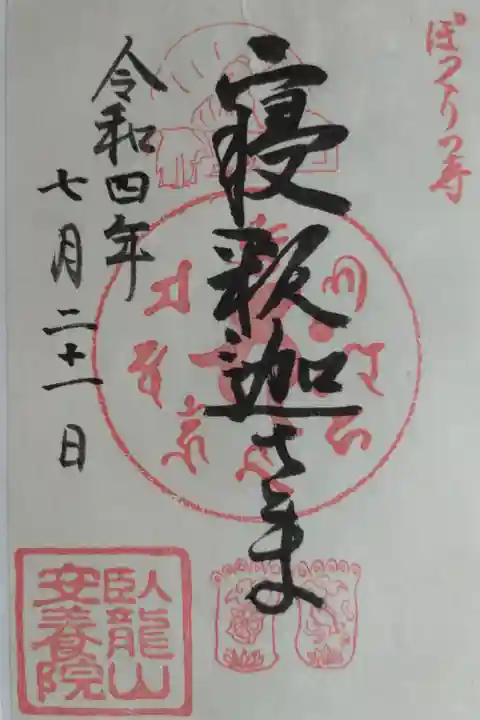 ぽっくりの寺
寝釈迦さま
令和四年
七月二十一日
臥龍山
安養院